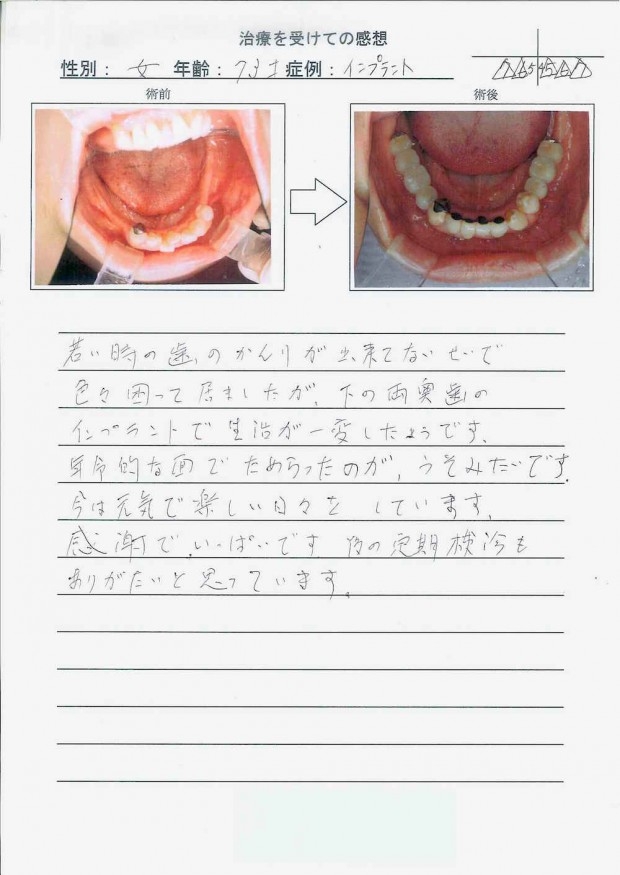 治療を受けての感想
性別： 女 年齢： 73才 症例： インプラント
765 4567
術前
術後
若い時の歯のかんりが出来てないせいで
色々困って居ましたが、下の両奥歯の
インプラントで生活が一変したようです、
年令的な面でためらったのが、うそみたいです.
今は元気で楽しい日々を していています、
感謝で、いっぱいです 後の定期検診も
ありがたいと思っています。